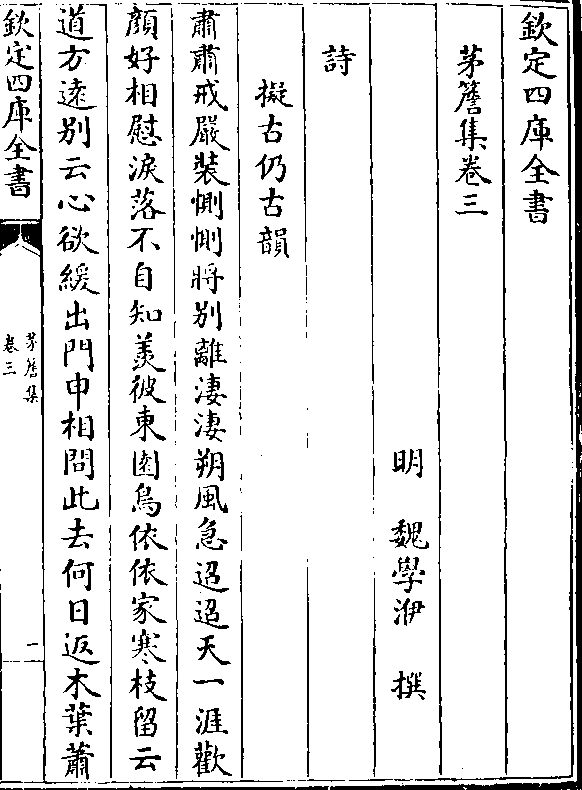 欽定四庫全書
茅簷集卷三
明 魏學洢 撰
詩
擬古仍古韻
肅肅戒嚴裝惻惻將別離淒淒朔風急迢迢天一涯歡
顔好相慰淚落不自知羨彼東園鳥依依家寒枝留云
道方遠別云心欲緩出門申相問此去何日返木葉蕭
欽定四庫全書
茅簷集
卷三
一